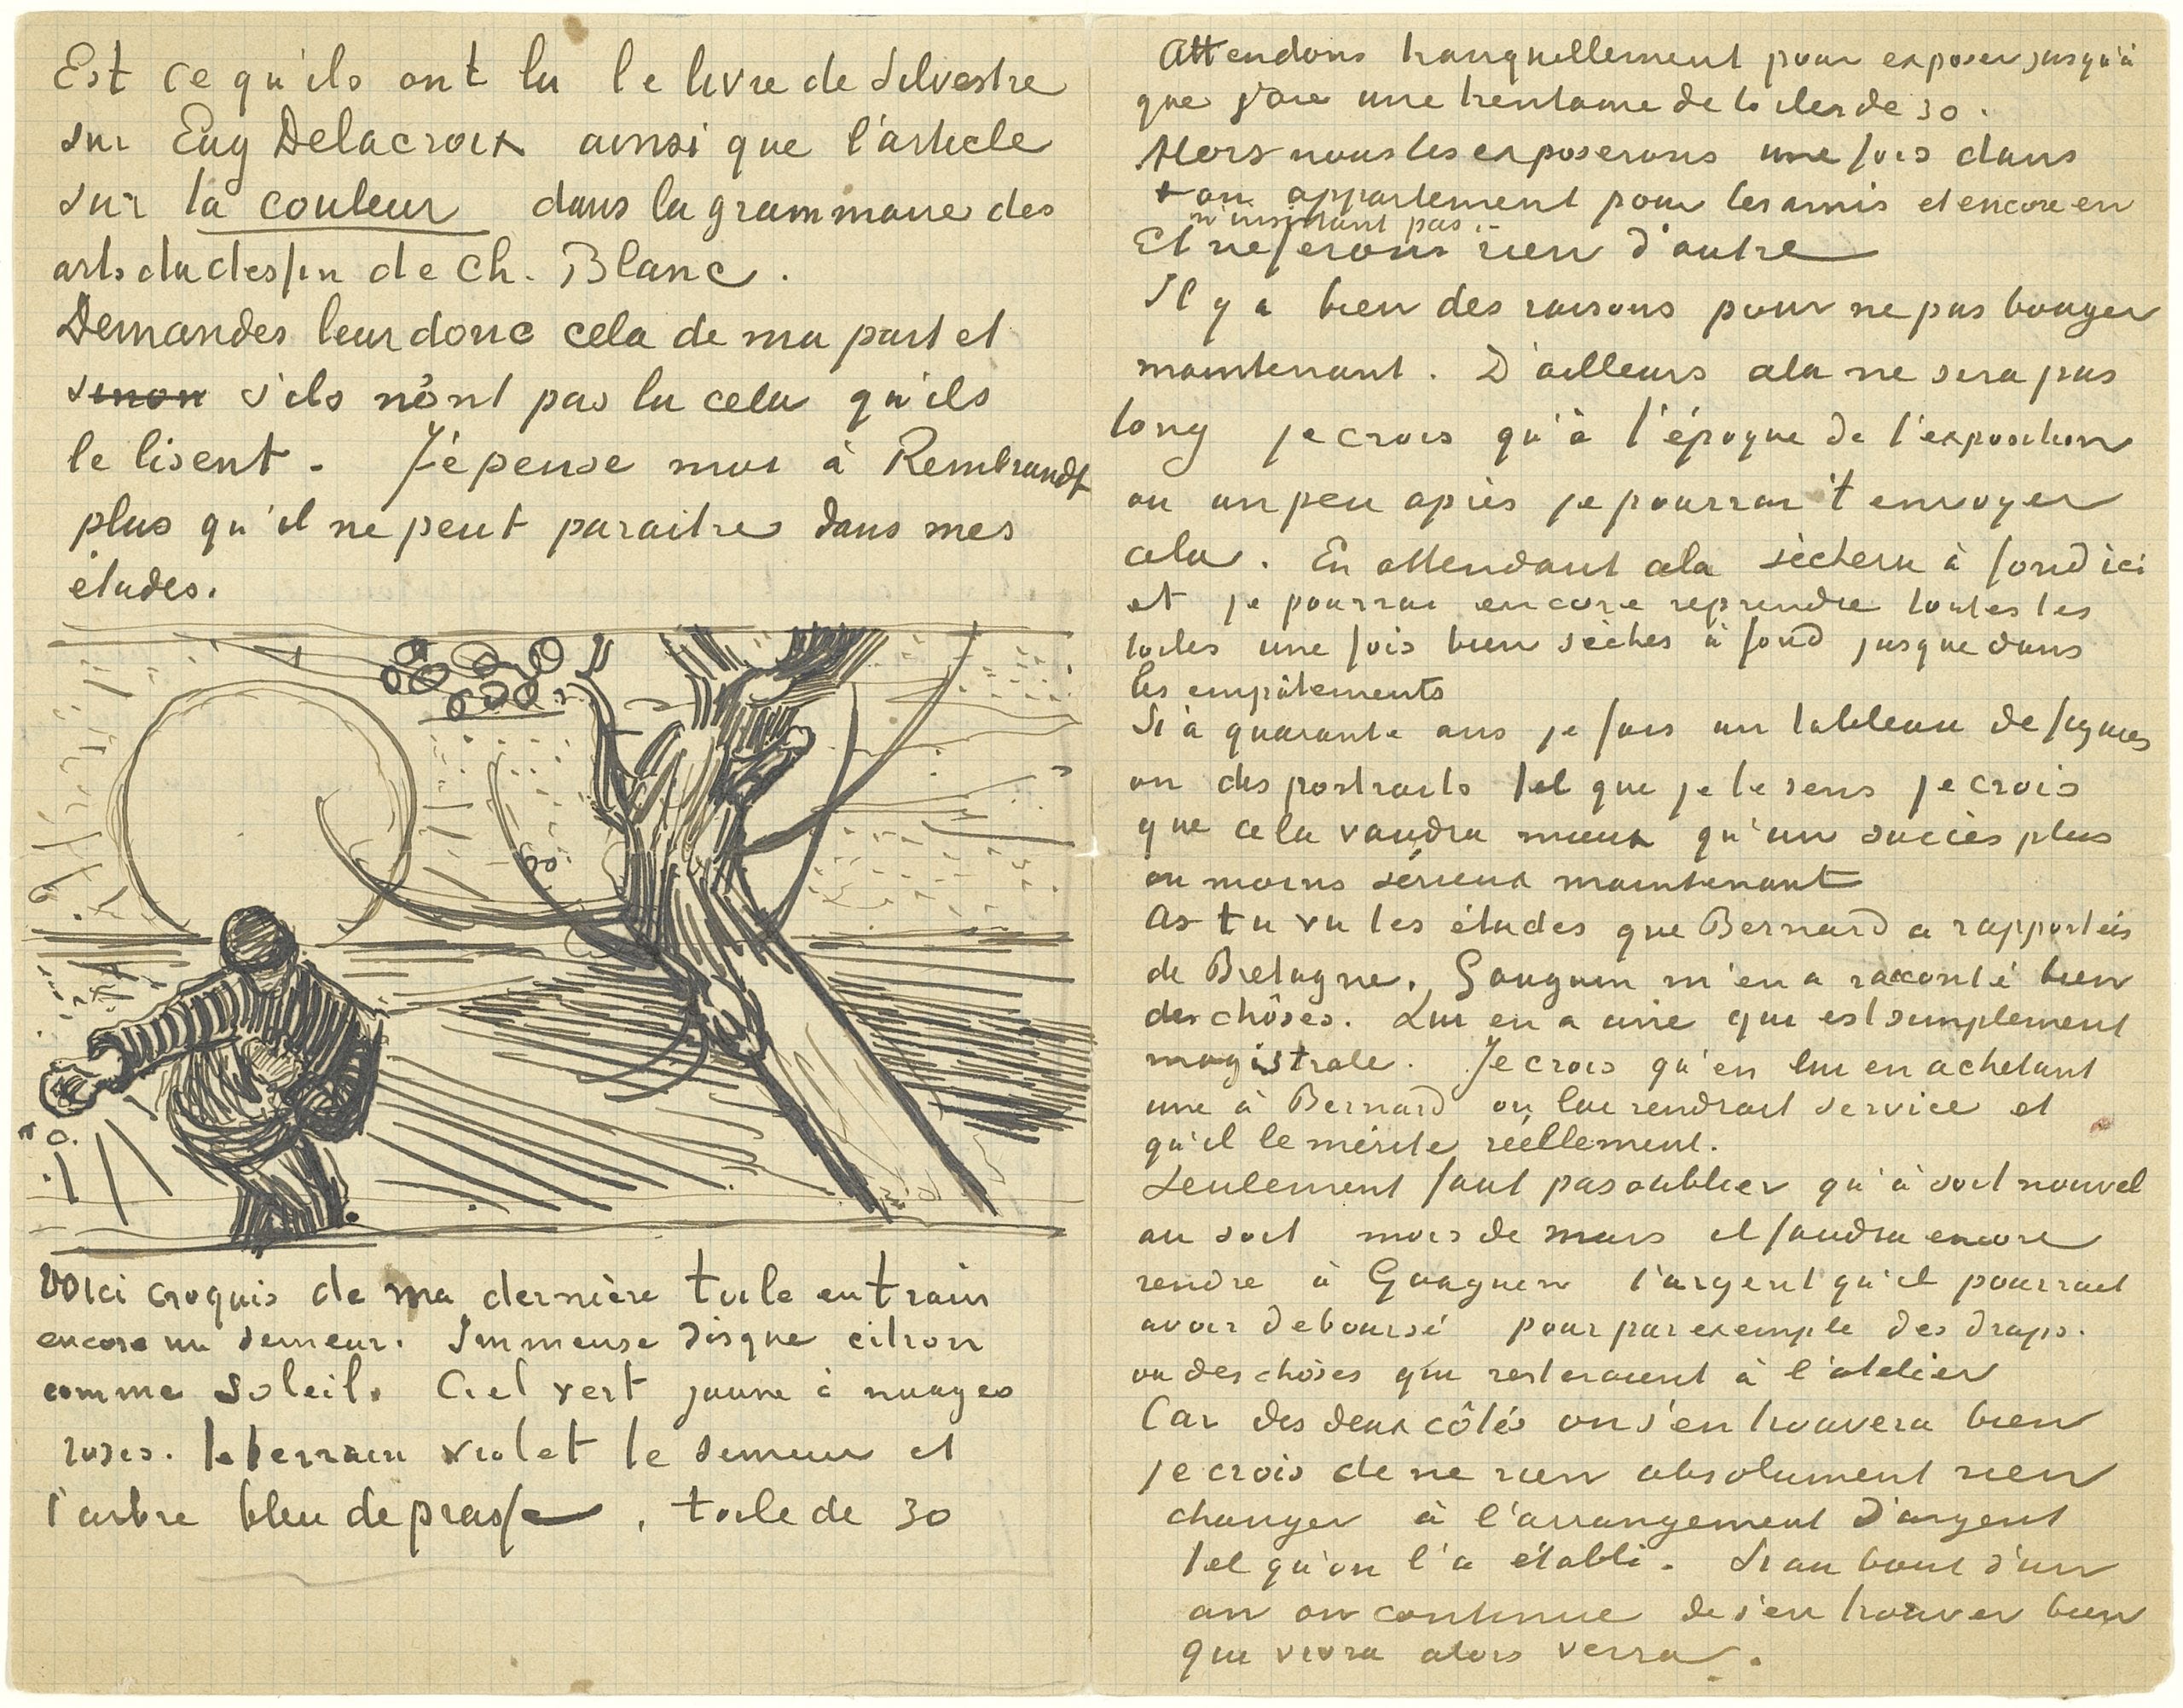 Est ce qu'ils ont lu le livre de Silvestre
sur Eug Delacroix ainsi que l'article
sur la couleur dans la grammaire des
arts du dessin de Ch. Blanc.
Demandes leur donc cela de ma part et
sinon s'ils n'ont pas lu cela qu'ils
le lisent. J'épense moi à Rembrandt
plus qu'il ne peut paraitre dans mes
études.
Voici croquis de ma dernière toile en train
encore un semeur. Immense disque citron
comme soleil. Ciel vert jaune à nuages
roses. le terrain violet le semeur et
l'arbre bleu de prusse, toile de 30
Attendons tranquillement pour exposer jusqu'à
que j'aie une trentaine de toiles de 30.
Alors nous les exposerons une fois dans
ton appartement pour les amis et encore en
n'insistant pas.
Et ne ferons rien d'autre
Il y a bien des raisons pour ne pas bouger
maintenant. D'ailleurs cela ne sera pas
long je crois qu'à l'époque de l'exposition
ou un peu après je pourrai t'envoyer
cela. En attendant cela sèchera à fond ici
et je pourrai encore reprendre toutes les
toiles une fois bien sèches à fond jusque dans
les empâtements
Si à quarante ans je fais un tableau de figures
ou des portraits tel que je le sens je crois
que cela vaudra mieux qu'un succès plus
ou moins sérieux maintenant
As tu vu les études que Bernard a rapportées
de Bretagne. Gauguin m'en a raconté bien
des chôses. Lui en a une qui est simplement
magistrale. Je crois qu'en lui en achetant
une à Bernard on lui rendrait service et
qu'il le mérite réellement.
Seulement faut pas oublier qu'à soit nouvel
an soit mois de mars il faudra encore
rendre à Gauguin l'argent qu'il pourrait
avoir deboursé pour par exemple des draps.
ou des chôses qui resteraient à l'atelier
Car des deux côtés on s'en trouvera bien
je crois de ne rien absolument rien
changer à l'arrangement d'argent
tel qu'on l'a établi. Si au bout d'un
an on continue de s'en trouver bien
qui vivra alors verra.